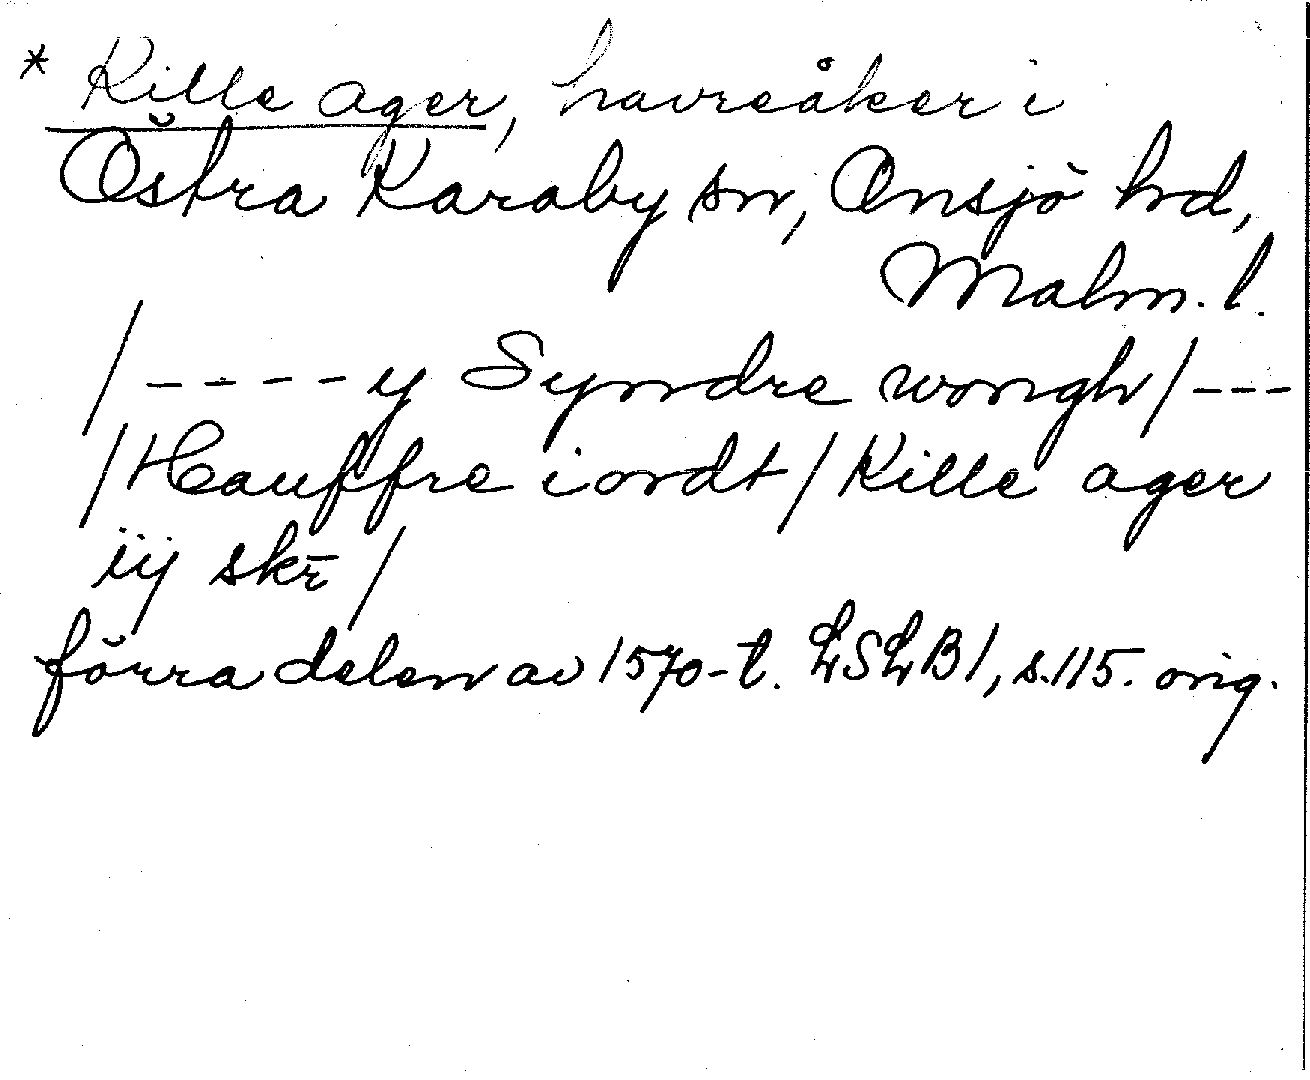 * Kille ager, havreåker i
Östra Karaby sn, Onsjö hd,
Malm. l.
/ - - - - y Syndre wongh / - - -
/ Hauffre iordt / Kille ager
iij skr̄ /
förra delen av 1570-t. LSLB1, s.115. orig.